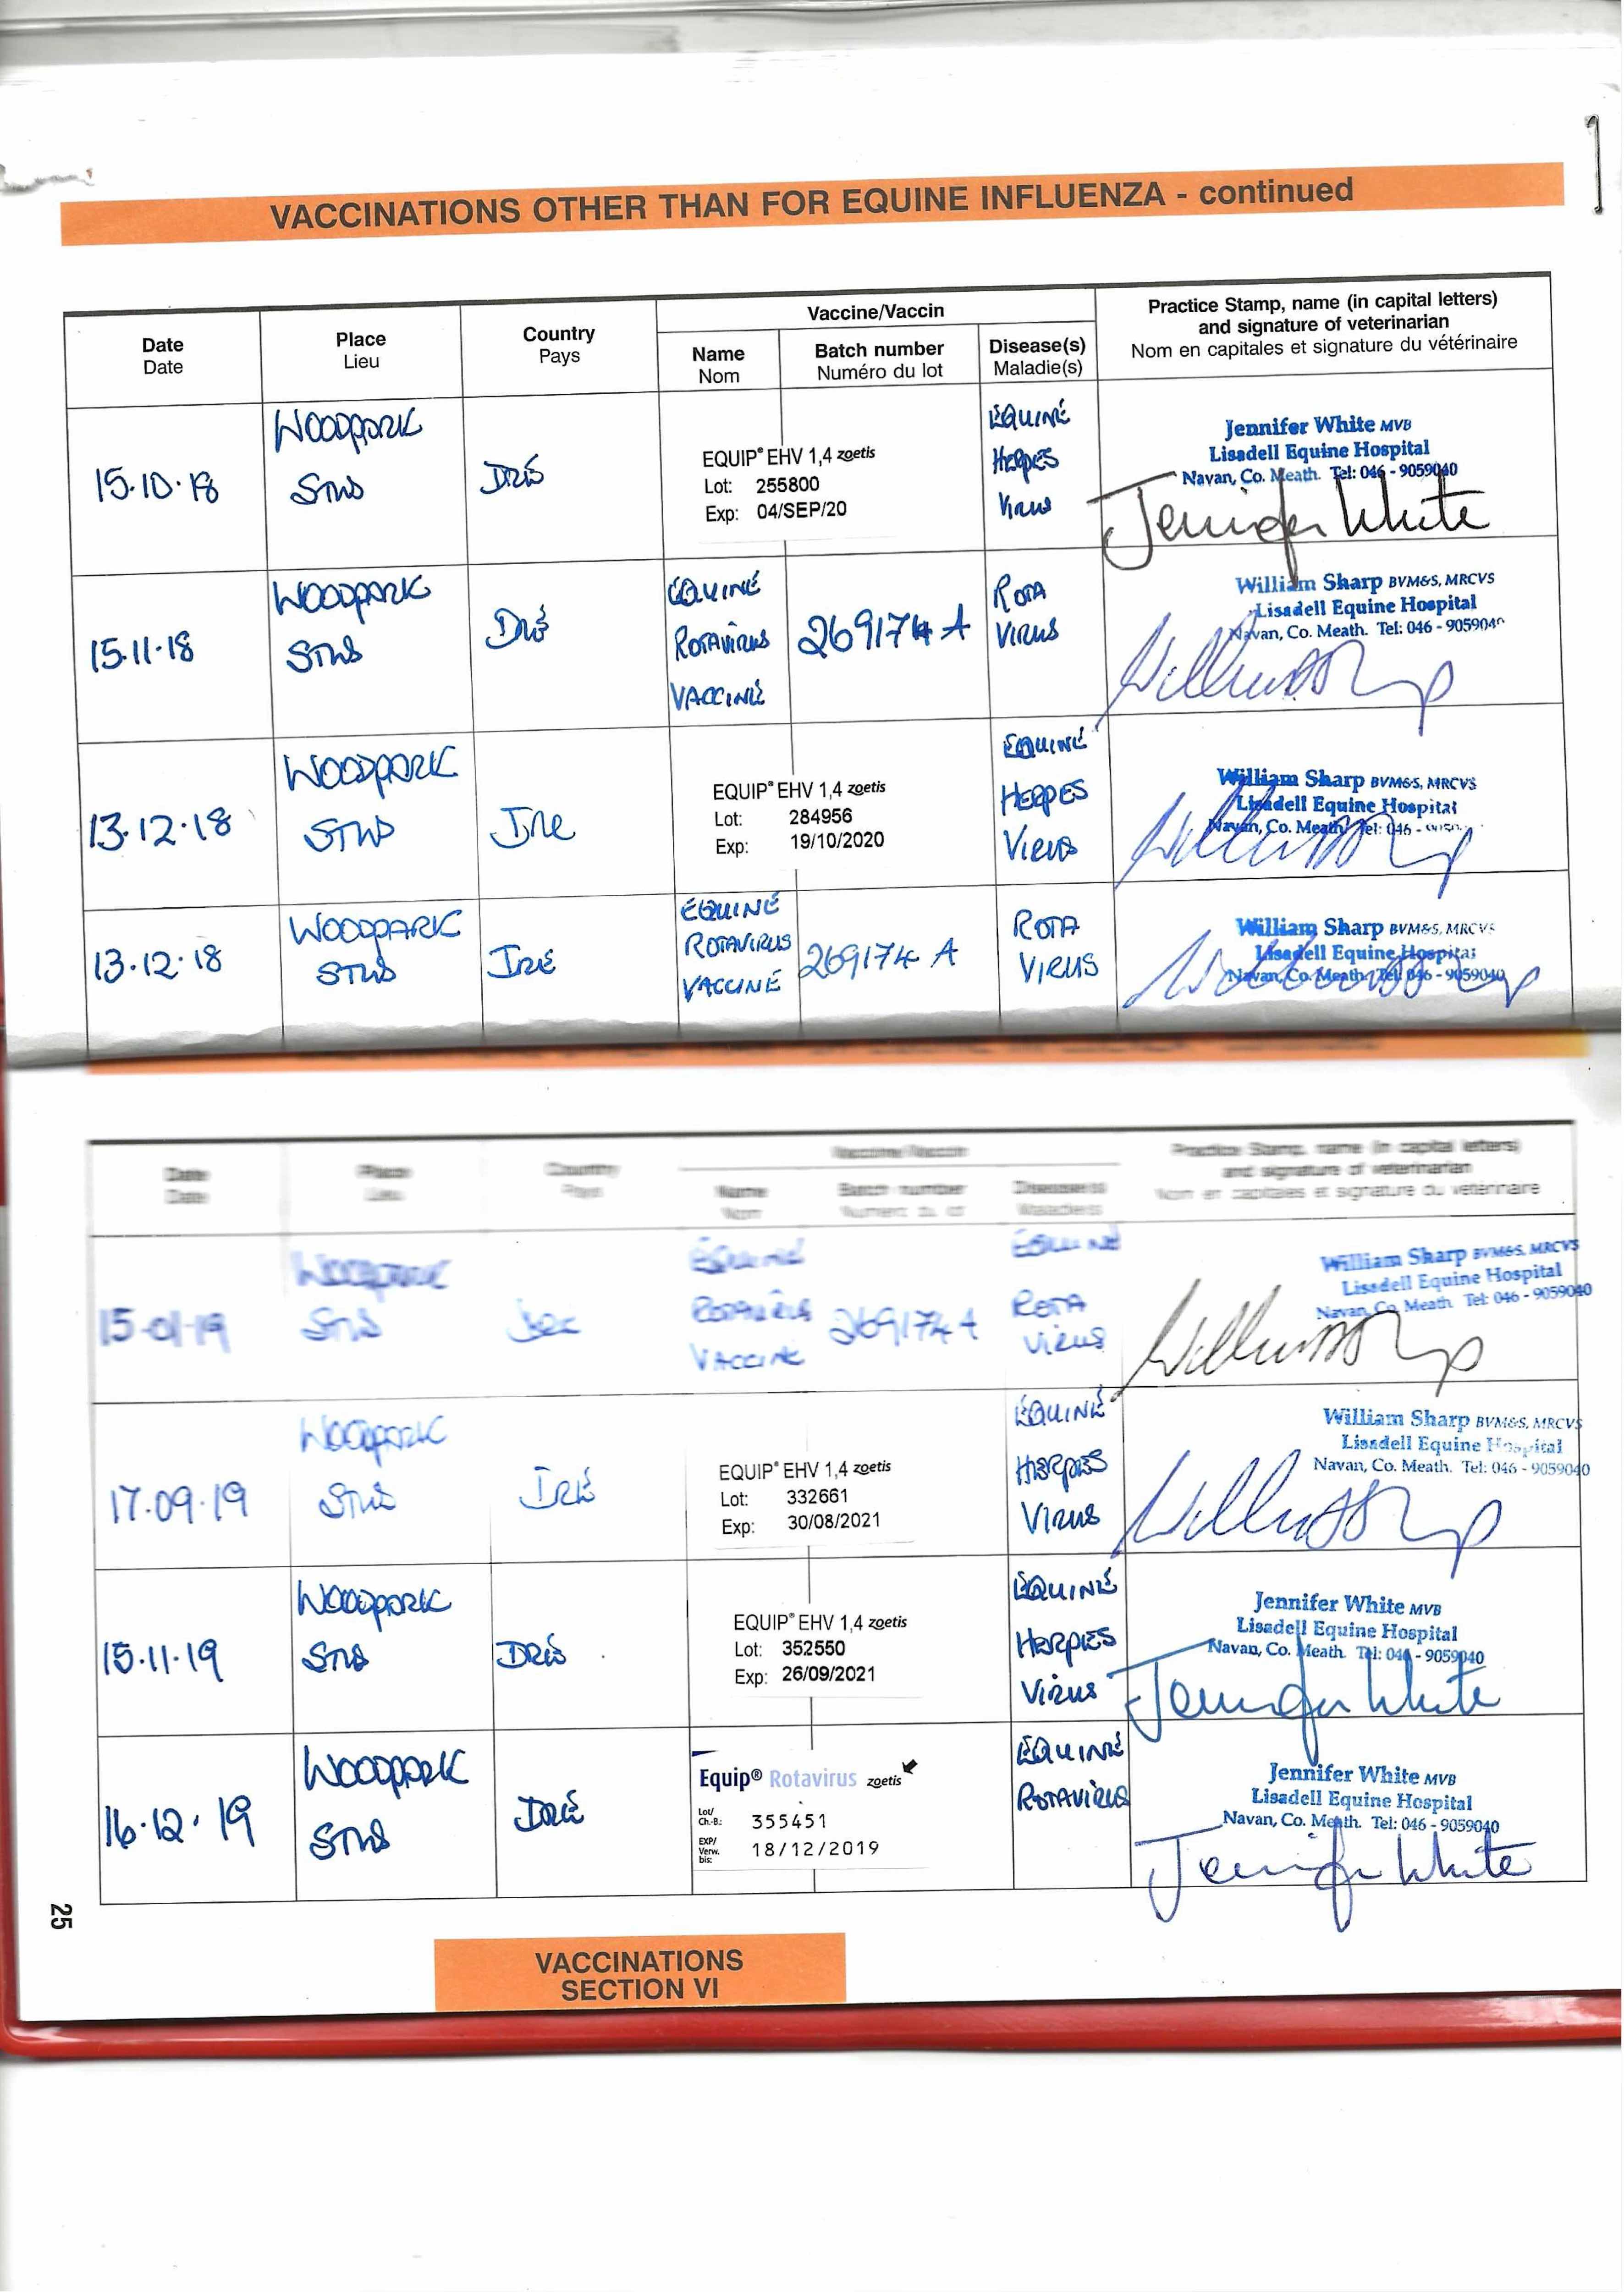 VACCINATIONS OTHER THAN FOR EQUINE INFLUENZA - continued
Date
Date
Place
Lieu
Country
Pays
Vaccine/Vaccin
Name
Nom
Batch number
Numéro du lot
Disease(s)
Maladie(s)
Practice Stamp, name (in capital letters)
and signature of veterinarian
Nom en capitales et signature du vétérinaire
15.10.18
WOODPARK
STUD
IRE
EQUIP® EHV 1,4 zoetis
Lot: 255800
Exp: 04/SEP/20
EQUINE
HERPES
VIRUS
Jennifer White MVB
Lisadell Equine Hospital
Navan, Co. Meath. Tel: 046 - 9059040
Jennifer White
15.11.18
WOODPARK
STUD
IRE
EQUINE
ROTAVIRUS
VACCINE
269174 A
ROTA
VIRUS
William Sharp BVM&S, MRCVS
Lisadell Equine Hospital
Navan, Co. Meath. Tel: 046 - 905904
13.12.18
WOODPARK
STUD
IRE
EQUIP® EHV 1,4 zoetis
Lot: 284956
Exp: 19/10/2020
EQUINE
HERPES
VIRUS
William Sharp BVM&S, MRCVS
Lisadell Equine Hospital
Navan, Co. Meath. Tel: 046 -
13.12.18
WOODPARK
STUD
IRE
EQUINE
ROTAVIRUS
VACCINE
269174 A
ROTA
VIRUS
William Sharp BVM&S, MRCVS
Lisadell Equine Hospital
Navan, Co. Meath. Tel: 046 - 9059040
Date
Date
Place
Lieu
Country
Pays
Vaccine/Vaccin
Name
Nom
Batch number
Numéro du lot
Disease(s)
Maladie(s)
Practice Stamp, name (in capital letters)
and signature of veterinarian
Nom en capitales et signature du vétérinaire
15-01-19
WOODPARK
STUD
EQUINE
ROTAVIRUS
VACCINE
269174 A
EQUINE
ROTA
VIRUS
William Sharp BVM&S, MRCVS
Lisadell Equine Hospital
Navan, Co. Meath. Tel: 046 - 9059040
17.09.19
WOODPARK
STUD
IRE
EQUIP® EHV 1,4 zoetis
Lot: 332661
Exp: 30/08/2021
EQUINE
HERPES
VIRUS
William Sharp BVM&S, MRCVS
Lisadell Equine Hospital
Navan, Co. Meath. Tel: 046 - 9059040
15.11.19
WOODPARK
STUD
IRE
EQUIP® EHV 1,4 zoetis
Lot: 352550
Exp: 26/09/2021
EQUINE
HERPES
VIRUS
Jennifer White MVB
Lisadell Equine Hospital
Navan, Co. Meath. Tel: 046 - 9059040
Jennifer White
16.12.19
WOODPARK
STUD
IRE
Equip® Rotavirus zoetis
Lot/
Ch.-B.: 355451
EXP/
Verw.
bis: 18/12/2019
EQUINE
ROTAVIRUS
Jennifer White MVB
Lisadell Equine Hospital
Navan, Co. Meath. Tel: 046 - 9059040
Jennifer White
25
VACCINATIONS
SECTION VI